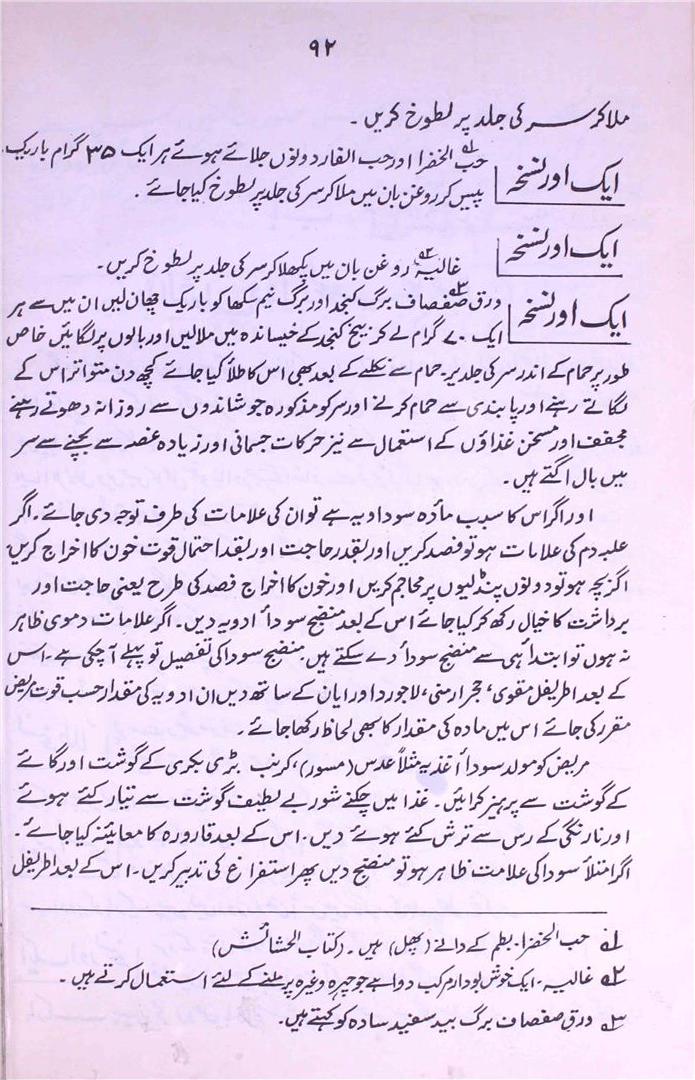 ۹۲
ملا کر سر کی جلد پر لطوخ کریں ۔
ایک اور نسخہ
حب الخضرا۱؎ اور حب الغار دونوں جلائے ہوئے ہر ایک ۳۵ گرام باریک
پیس کر روغن بان میں ملا کر سر کی جلد پر لطوخ کیا جائے ۔
ایک اور نسخہ
غالیہ۲؎ روغن بان میں پگھلا کر سر کی جلد پر لطوخ کریں ۔
ایک اور نسخہ
ورق صفصاف۳؎ برگ کنجد اور برگ نیم سکھا کو باریک چھان لیں ان میں سے ہر
ایک ۷۰ گرام لے کر بیخ کنجد کے خیساندہ میں ملا لیں اور بالوں پر لگائیں خاص
طور پر حمام کے اندر سر کی جلد پر۔ حمام سے نکلنے کے بعد بھی اس کا طلأ کیا جائے کچھ دن متواتر اس کے
لگاتے رہنے اور پابندی سے حمام کرنے اور سر کو مذکورہ جوشاندوں سے روزانہ دھوتے رہنے
مجفف اور مسخن غذاؤں کے استعمال سے نیز حرکات جسمانی اور زیادہ غصہ سے بچنے سے سر
میں بال اگتے ہیں ۔
اور اگر اس کا سبب مادّہ سوداویہ ہے تو ان کی علامات کی طرف توجہ دی جائے ۔ اگر
غلبہ دم کی علامات ہو تو فصد کریں اور بقدر حاجت اور بقدر احتمال قوت خون کا اخراج کریں،
اگر بچہ ہو تو دونوں پنڈلیوں پر محاجم کریں اور خون کا اخراج فصد کی طرح یعنی حاجت اور
برداشت کا خیال رکھ کر کیا جائے اس کے بعد منضج سودأ ادویہ دیں ۔ اگر علامات دموی ظاہر
نہ ہوں تو ابتدأ ہی سے منضج سودأ دے سکتے ہیں۔ منضج سودا کی تفصیل تو پہلے آچکی ہے ۔ اس
کے بعد اطریفل مقوی، حجر ارمنی، لاجورد اور ایان کے ساتھ دیں ان ادویہ کی مقدار حسب قوت مریض
مقرر کی جائے اس میں مادہ کی مقدار کا بھی لحاظ رکھا جائے ۔
مریض کو مولد سودأ اغذیہ مثلاً عدس (مسور)، کرنب بڑی بکری کے گوشت اور گائے
کے گوشت سے پرہیز کرائیں ۔ غذا میں چکنے شوربے لطیف گوشت سے تیار کئے ہوئے
اور نارنگی کے رس سے ترش کئے ہوئے دیں ۔ اس کے بعد قارورہ کا معائینہ کیا جائے ۔
اگر امتلأ سودا کی علامت ظاہر ہو تو منضج دیں پھر استفراغ کی تدبیر کریں ۔ اس کے بعد اطریفل
۱؎ حب الخضرا۔ بطم کے دانے (پھل) ہیں ۔ (کتاب الحشائش)
۲؎ غالیہ ۔ ایک خوش بودار مرکب دوا ہے جو چہرہ وغیرہ پر ملنے کے لئے استعمال کرتے ہیں ۔
۳؎ ورق صفصاف برگ بید سفید سادہ کو کہتے ہیں ۔